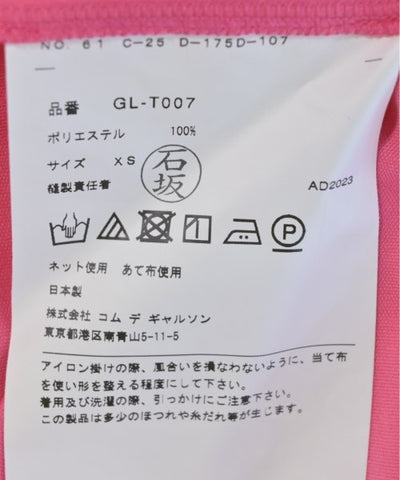 NO. 61 C-25 D-175D-107
品番 GL-T007
ポリエステル 100%
サイズ XS
縫製責任者 石坂
AD2023
ネット使用 あて布使用
日本製
株式会社 コム デ ギャルソン
東京都港区南青山5-11-5
アイロン掛けの際、風合いを損なわないように、当て布
を使い形を整える程度にして下さい。
着用及び洗濯の際、引っかけにご注意下さい。
この製品は多少のほつれや糸だれ等が生じます。